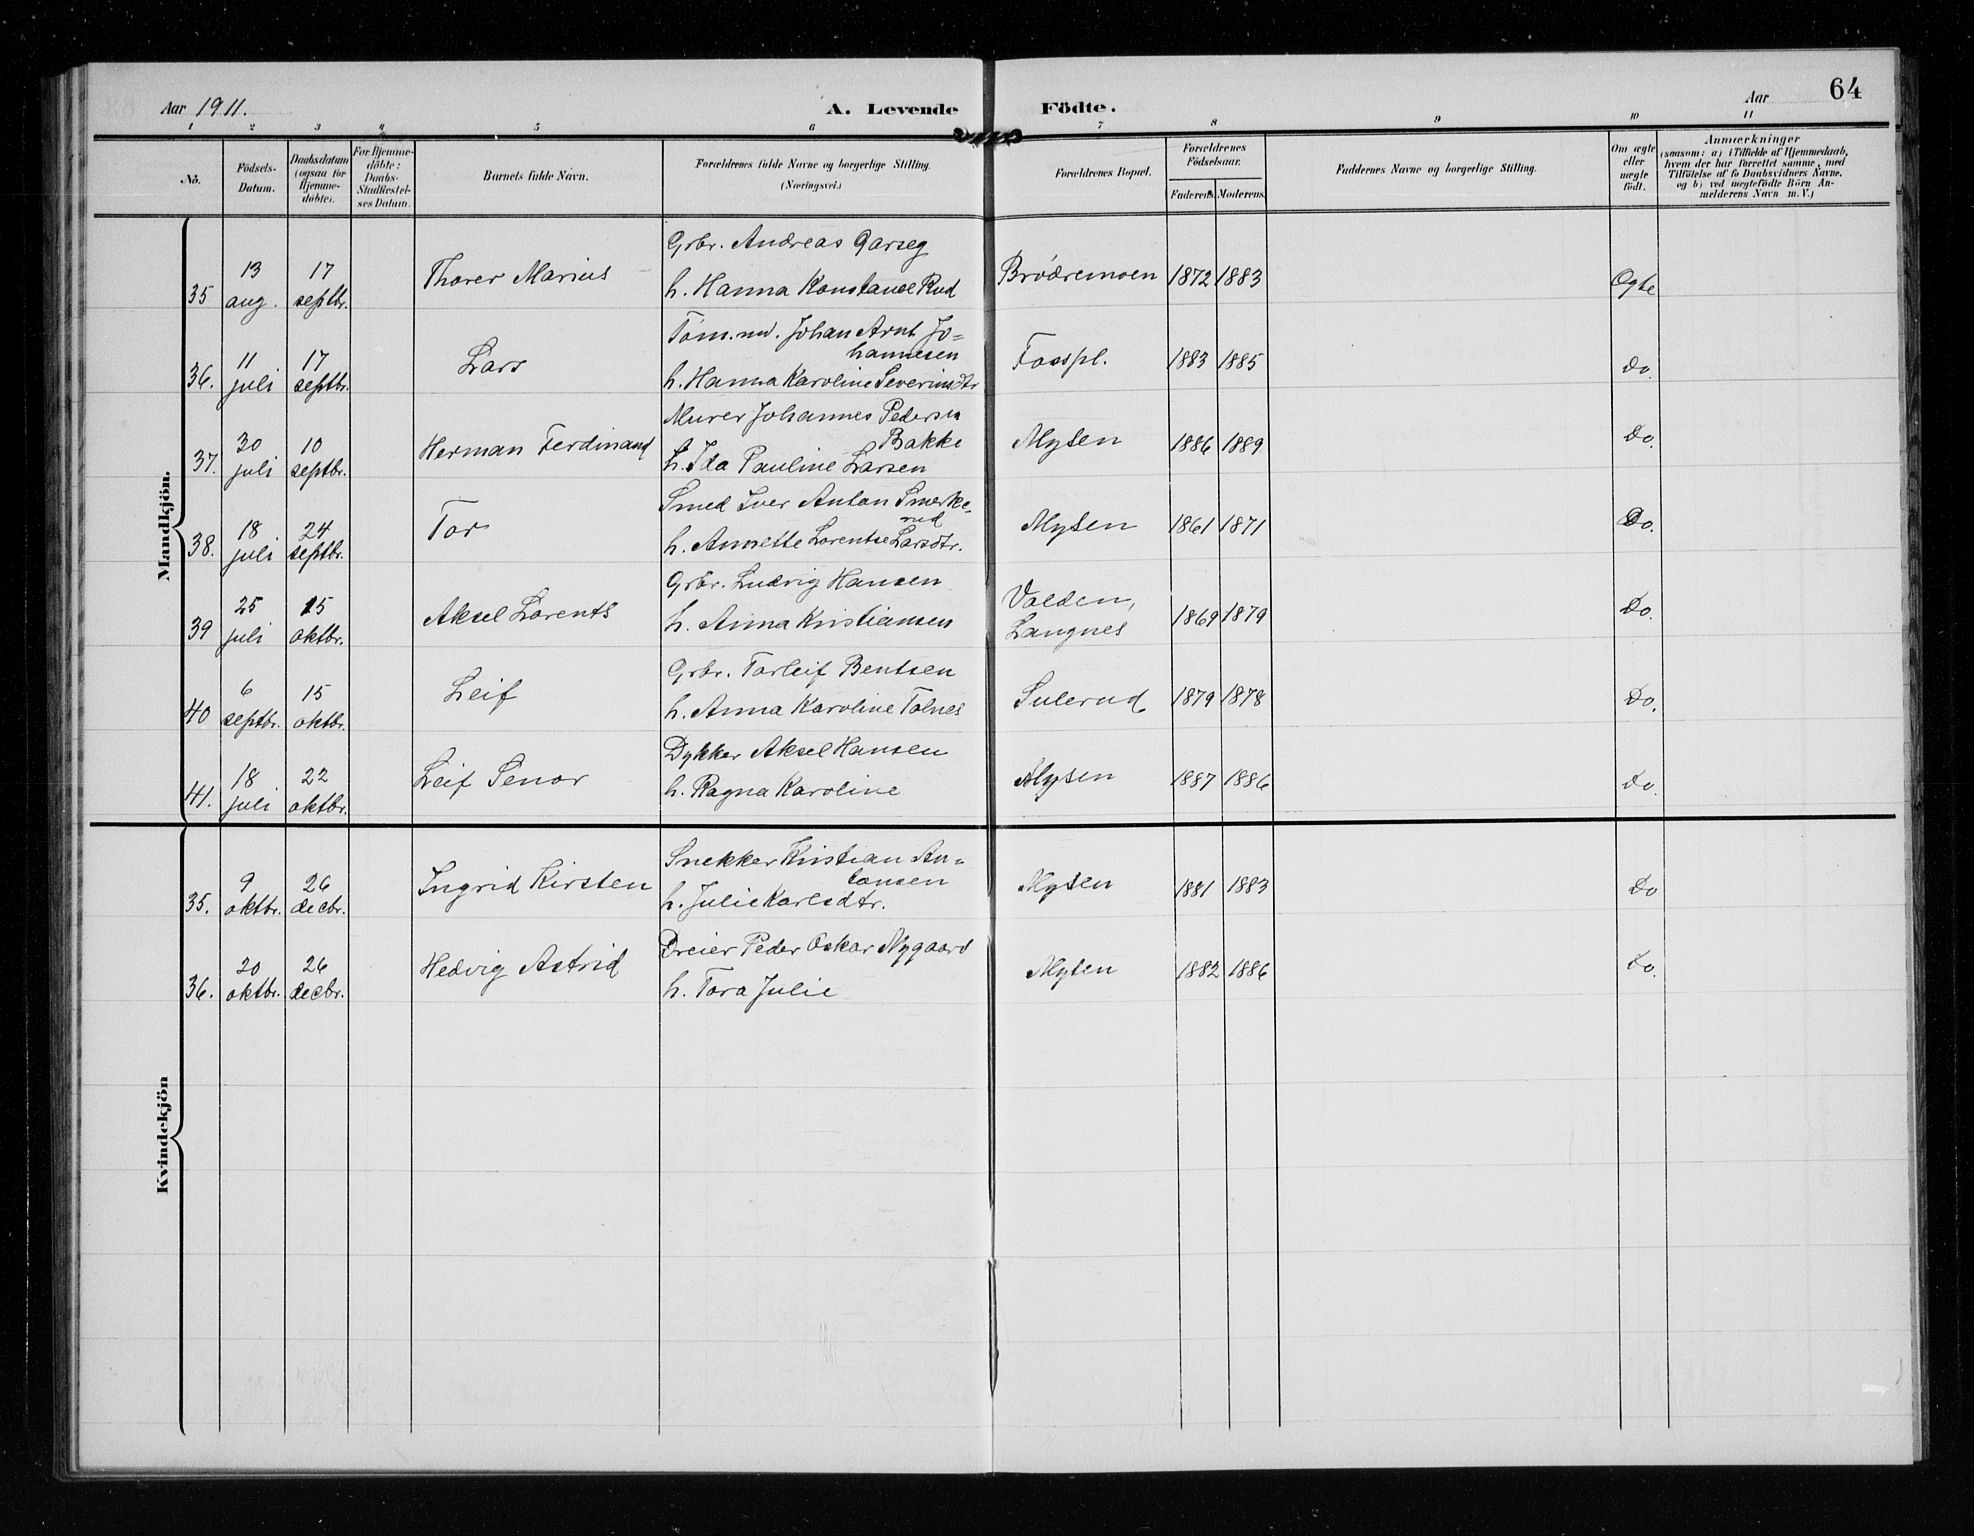 Aar 1911. A. Levende Födte. Aar 64
1 2 3 4 5 6 7 8 9 10 11
No. Födsels-Datum. Daabsdatum (ogsaa for Hjemme-döbte). For Hjemme-döbte: Daabs-Stadfæstel-ses Datum. Barnets fulde Navn. Forældrenes fulde Navne og borgerlige Stilling. (Næringsvei.) Forældrenes Bopæl. Forældrenes Födselsaar. Faderens. Moderens. Faddernes Navne og borgerlige Stilling. Om ægte eller uægte födt. Anmærkninger (saasom: a) i Tilfælde af Hjemmedaab, hvem der har forrettet samme, med Tilföielse af to Daabsvidners Navne. og b) ved uægtefödte Börn An-melderens Navn m. V.)
Mandkjön.
Grbr. Andreas Garseg
35 13 aug. 17 septbr. Thorer Marius h. Hanna Konstanse Rud Brödremoen 1872 1883 Ægte
Töm.md. Johan Arnt Jo=
hannesen
36. 11 juli 17 septbr. Lars h. Hanna Karoline Severinsdtr Fosspl. 1883 1885 Do.
Murer Johannes Pedersen
Bakke
37. 30 juli 10 septbr. Herman Ferdinand h. Ida Pauline Larsen Mysen 1886 1889 Do.
Smed Iver Anton Smerke-
rud
38. 18 juli 24 septbr. Tor h. Annette Lorentse Larsdtr. Mysen 1861 1871 Do.
Grbr. Ludvig Hansen
39 25 juli 15 oktbr. Aksel Lorents h. Anna Kristiansen Volden, Langnes 1869 1879 Do.
Grbr. Torleif Bentsen
40 6 septbr. 15 oktbr. Leif h. Anna Karoline Tolnes Sulerud 1879 1878 Do.
Dykker Aksel Hansen
41. 18 juli 22 oktbr. Leif Senor h. Ragna Karoline Mysen 1887 1886 Do.
Kvindekjön
Snekker Kristian An=
tonsen
35. 9 oktbr. 26 decbr. Ingrid Kirsten h. Julie Karlsdtr. Mysen 1881 1883 Do
Dreier Peder Oskar Nygaard
36. 20 oktbr. 26 decbr. Hedvig Astrid h. Tora Julie Mysen 1882 1886 Do.